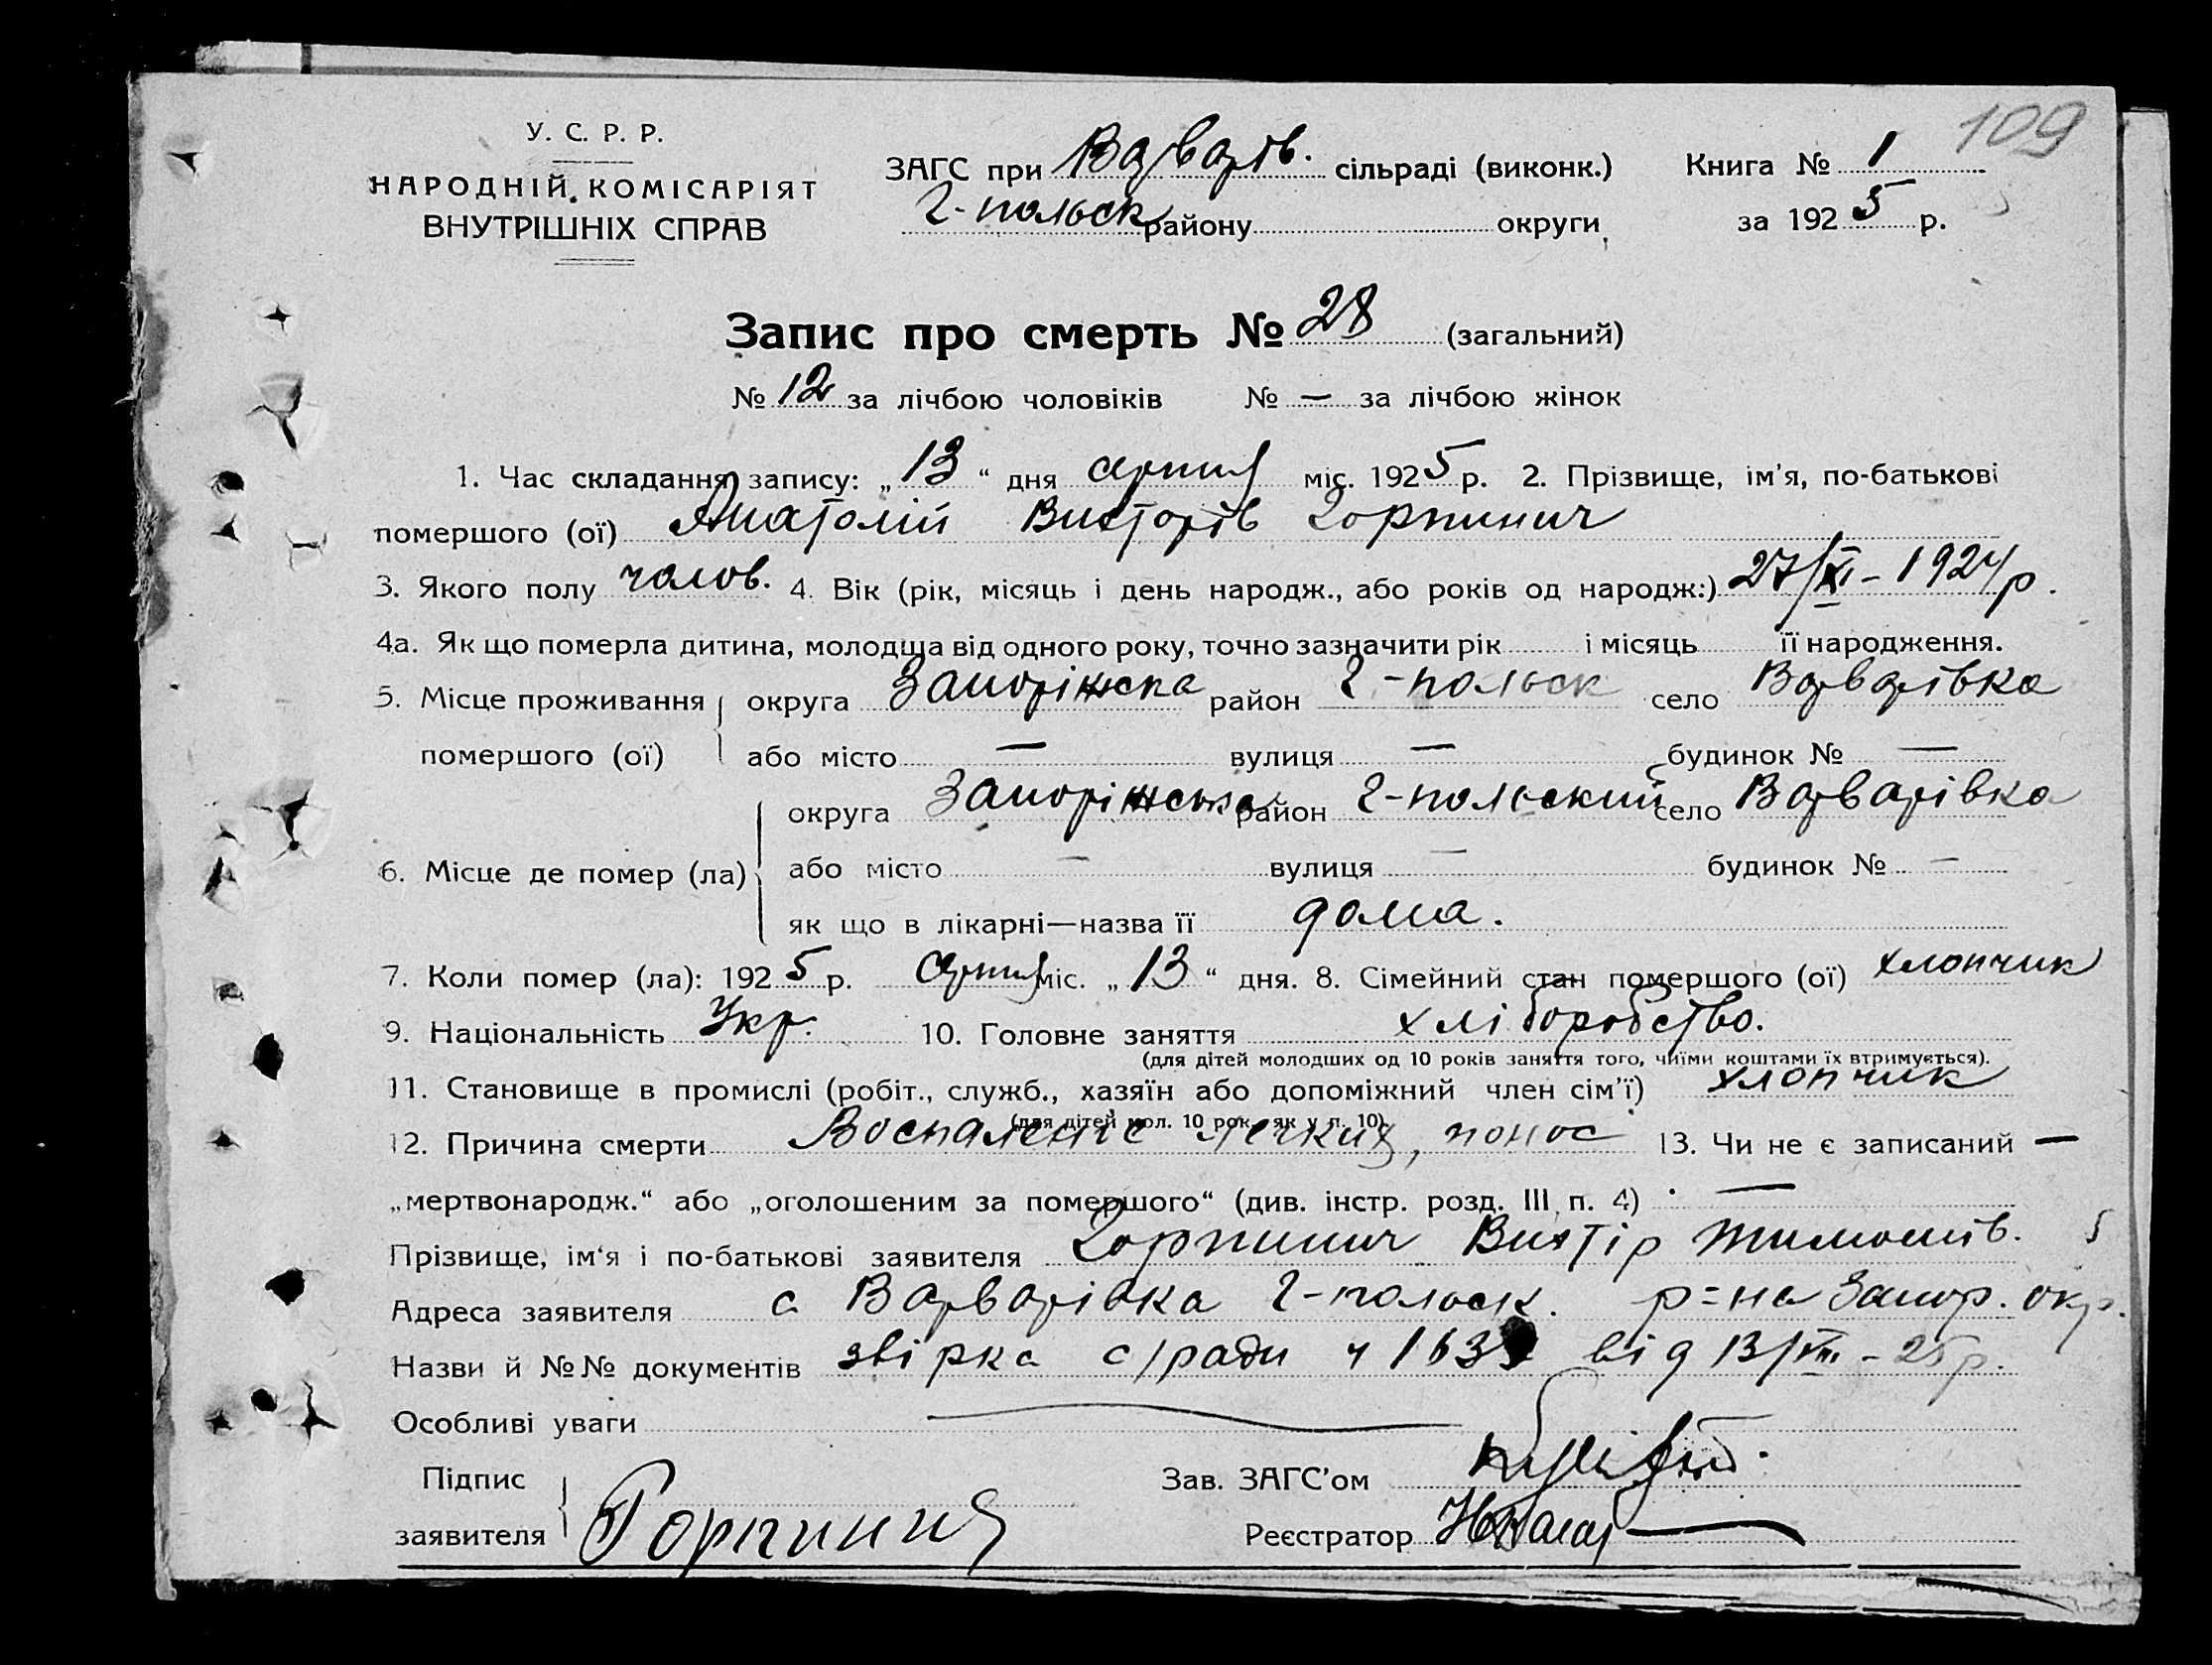 109
У. С. Р. Р.
НАРОДНІЙ КОМІСАРІЯТ
ВНУТРІШНІХ СПРАВ
ЗАГС при Варварів. сільраді (виконк.) Книга № 1
Г-польск району округи за 1925 р.
Запис про смерть № 28 (загальний)
№ 12 за лічбою чоловіків № — за лічбою жінок
1. Час складання запису: „13“ дня серпня міс. 1925 р. 2. Прізвище, ім'я, по-батькові
помершого (ої) Анатолій Вікторів Горпинич
3. Якого полу чолов. 4. Вік (рік, місяць і день народж., або років од народж.:) 27/XI - 1924 р.
4а. Як що померла дитина, молодща від одного року, точно зазначити рік і місяць її народження.
5. Місце проживання округа Запоріжска район Г-польск село Варварівка
помершого (ої) або місто — вулиця — будинок № —
округа Запоріжська район Г-польский село Варварівка
6. Місце де помер (ла) або місто — вулиця — будинок № —
як що в лікарні—назва її дома.
7. Коли помер (ла): 1925 р. серпня міс. „13“ дня. 8. Сімейний стан помершого (ої) хлопчик
9. Національність Укр. 10. Головне заняття хліборобство.
(для дітей молодших од 10 років заняття того, чиїми коштами їх втримується).
11. Становище в промислі (робіт., служб., хазяїн або допоміжний член сім'ї) хлопчик
(для дітей мол. 10 рок. як у п. 10).
12. Причина смерти Воспаление легких, понос 13. Чи не є записаний —
„мертвонародж.“ або „оголошеним за помершого“ (див. інстр. розд. III, п. 4) —
Прізвище, ім'я і по-батькові заявителя Горпинич Віктір Тимошів.
Адреса заявителя с Варварівка Г-польск. р=на Запор. окр.
Назви й №№ документів с/ради ч від 13/VIII - 25 р.
Особливі уваги
Підпис Зав. ЗАГС'ом
заявителя Горпинич Реєстратор